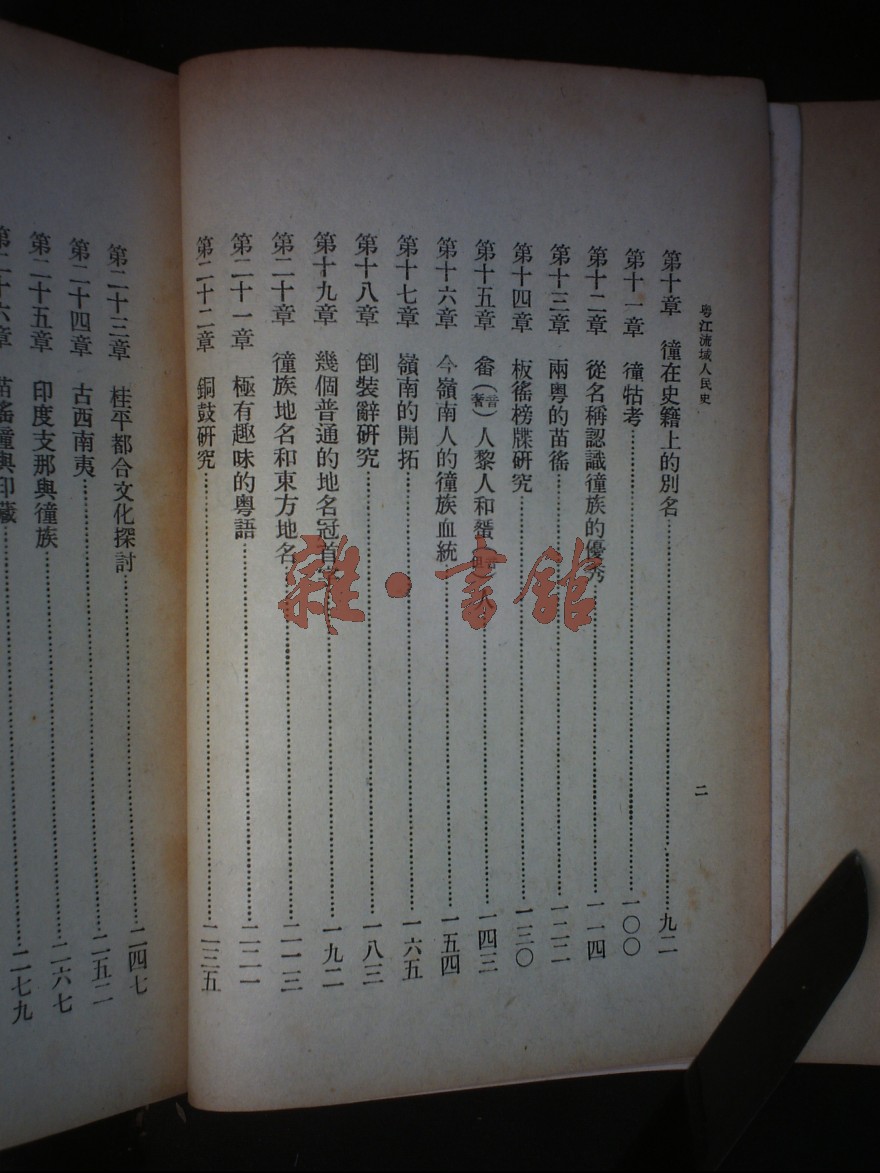 粵江流域人民史
二
第十章 獞在史籍上的別名……九二
第十一章 獞牯考……一〇〇
第十二章 從名稱認識獞族的優秀……一一四
第十三章 兩粵的苗徭……一二二
第十四章 板徭榜牒研究……一三〇
第十五章 畲（音奢）人黎人和蜑（音但）人……一四三
第十六章 今嶺南人的獞族血統……一五四
第十七章 嶺南的開拓……一六五
第十八章 倒裝辭研究……一八三
第十九章 幾個普通的地名冠首字……一九二
第二十章 獞族地名和東方地名……二一三
第二十一章 極有趣味的粵語……二二一
第二十二章 銅鼓研究……二三五
第二十三章 桂平都合文化探討……二四七
第二十四章 古西南夷……二五二
第二十五章 印度支那與獞族……二六七
第二十六章 苗徭獞與印藏……二七九
雜·書館